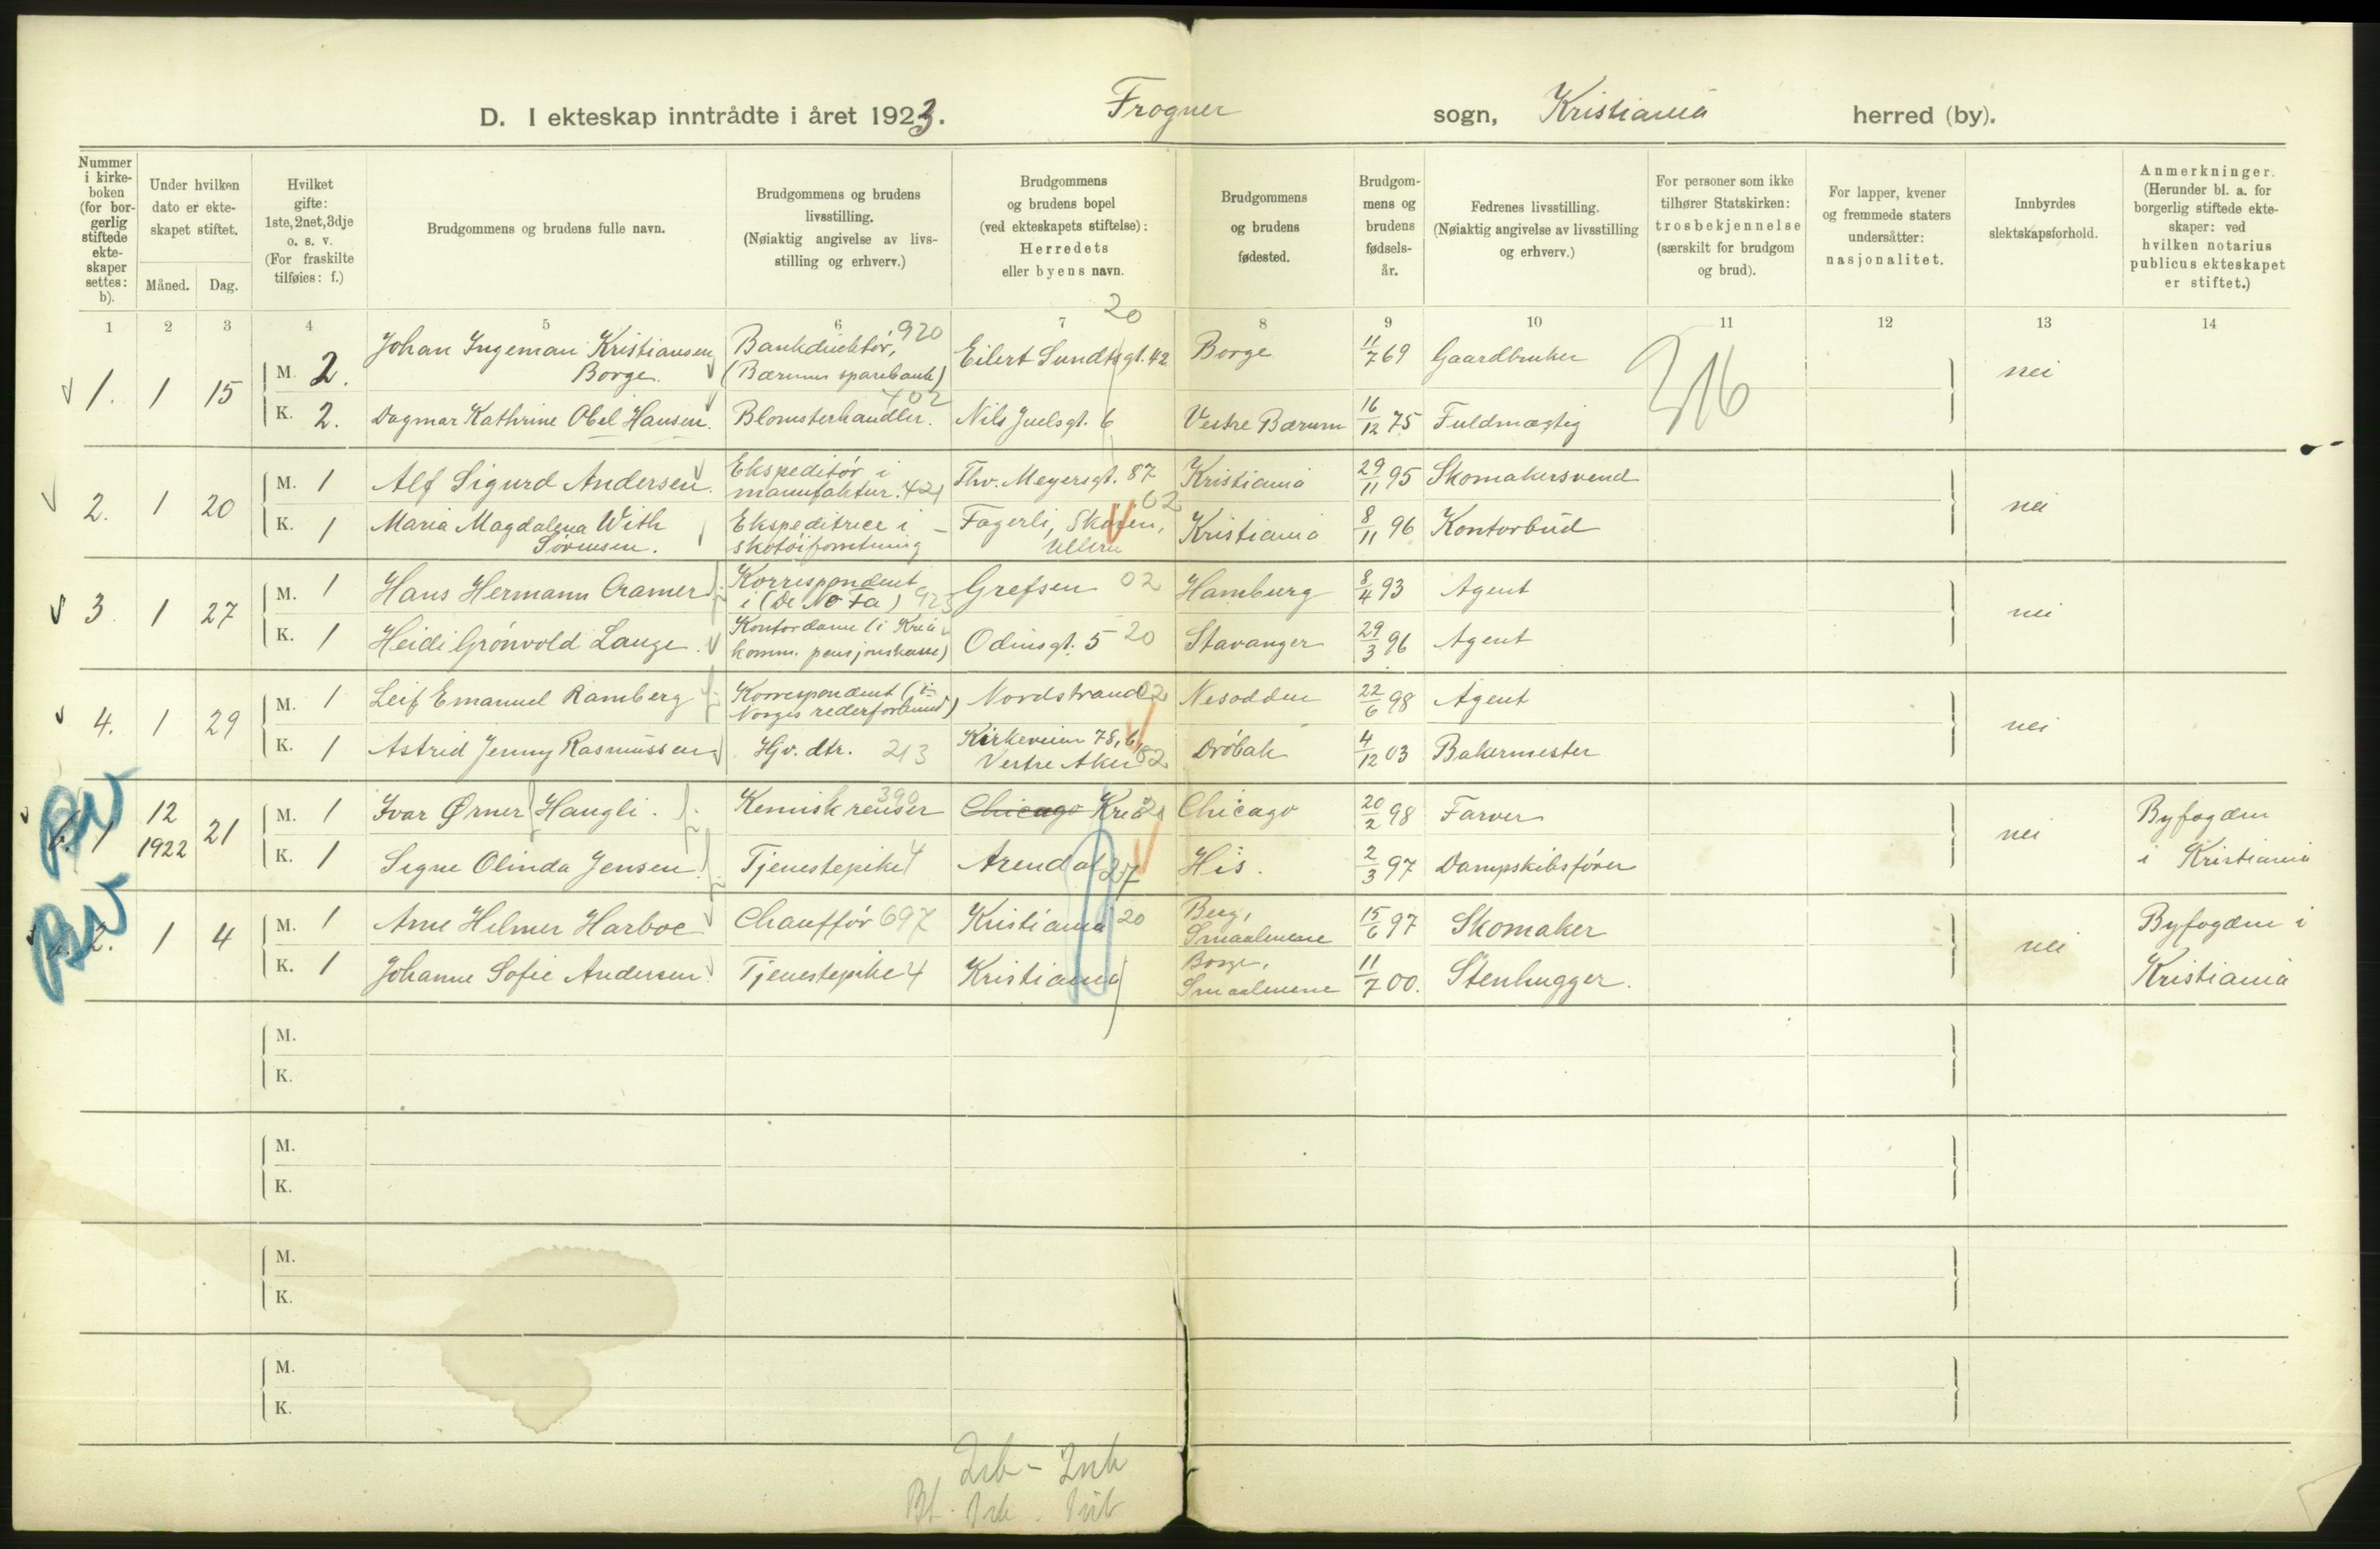 D. I ekteskap inntrådte i året 1923. Frogner sogn, Kristiania herred (by).
Nummer i kirkeboken (for borgerlig stiftede ekteskaper settes: b).
Under hvilken dato er ekteskapet stiftet.
Måned. Dag.
Hvilket gifte: 1ste, 2net, 3dje o. s. v. (For fraskilte tilføies: f.)
Brudgommens og brudens fulle navn.
Brudgommens og brudens livsstilling. (Nøiaktig angivelse av livsstilling og erhverv.)
Brudgommens og brudens bopel (ved ekteskapets stiftelse): Herredets eller byens navn.
Brudgommens og brudens fødested.
Brudgommens og brudens fødselsår.
Fedrenes livsstilling. (Nøiaktig angivelse av livsstilling og erhverv.)
For personer som ikke tilhører Statskirken: trosbekjennelse (særskilt for brudgom og brud).
For lapper, kvener og fremmede staters undersåtter: nasjonalitet.
Innbyrdes slektskapsforhold.
Anmerkninger. (Herunder bl. a. for borgerlig stiftede ekteskaper: ved hvilken notarius publicus ekteskapet er stiftet.)
1 2 3 4 5 6 7 8 9 10 11 12 13 14
20
1. 1 15 M. 2. Johan Ingeman Kristiansen Borge. Bankdirektør, 920 (Bærums sparebank) Eilert Sundtsgt. 42 Borge 11/7 69 Gaardbruker 316 nei
K. 2. Dagmar Kathrine Obel Hansen. Blomsterhandler. 402 Nils Juelsgt. 6 Vestre Bærum 16/12 75 Fuldmægtig
2. 1 20 M. 1 Alf Sigurd Andersen. Ekspeditør i manufaktur. 421 Thv. Meyersgt. 87 Kristiania 29/11 95 Skomakersvend nei
K. 1 Maria Magdalena With Sørensen. Ekspeditrice i skotøiforretning Fagerli, Skøien, Ullern 02 Kristiania 8/11 96 Kontorbud
3. 1 27 M. 1 Hans Hermann Cramer Korrespondent i (De No Fa) 923 Grefsen 02 Hamburg 8/4 93 Agent nei
K. 1 Heidi Grönvold Lange. Kontordame (i Kria komm. pensjonskasse) Odinsgt. 5 20 Stavanger 29/3 96 Agent
4. 1 29 M. 1 Leif Emanuel Ramberg Korrespondent (i Norges rederforbund) Nordstrand 02 Nesodden 22/6 98 Agent nei
K. 1 Astrid Jenny Rasmussen Hjv. dtr. 213 Kirkeveien 78, b, Vestre Aker 02 Drøbak 4/12 03 Bakermester
b. 1 12 1922 21 M. 1 Ivar Ørner Haugli. Kemisk renser 390 Chicago Kria 20 Chicago 20/2 98 Farver nei Byfogden i Kristiania
K. 1 Signe Olinda Jensen Tjenestepike 4 Arendal 27 His. 2/3 97 Dampskibsfører
b. 2. 1 4 M. 1 Arne Helmer Harboe Chauffør 697 Kristiania 20 Berg, Smaalenene 15/6 97 Skomaker nei Byfogden i Kristiania
K. 1 Johanne Sofie Andersen Tjenestepike 4 Kristiania Borge, Smaalenene 11/7 00. Stenhugger.
M.
K.
M.
K.
M.
K.
M.
K.